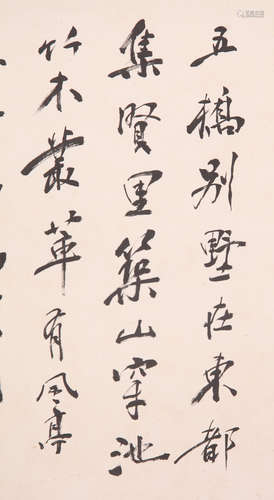 五橋別墅在東都
集賢里築山穿池
竹木叢萃有風亭